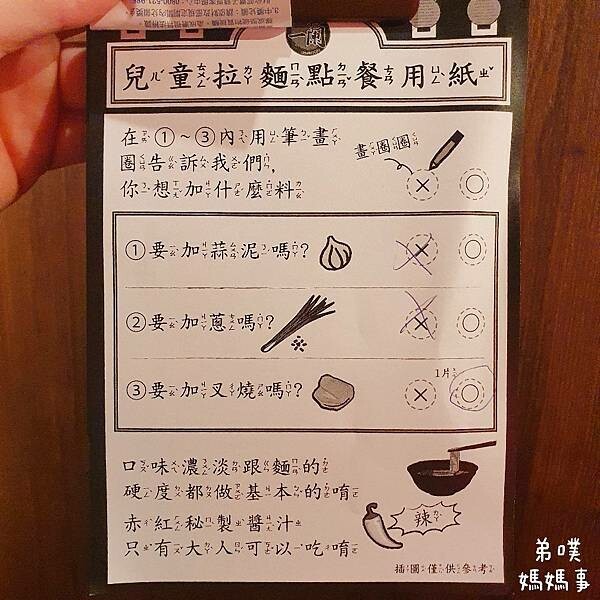 一蘭
兒童拉麵點餐用紙
在①～③內用筆畫
圈告訴我們,
你想加什麼料
畫圈圈
①要加蒜泥嗎?
②要加蔥嗎?
③要加叉燒嗎?
1片
口味濃淡跟麵的
硬度都做基本的唷
赤紅秘製醬汁
只有大人可以吃唷
辣
插圖僅供參考
弟噗
媽媽事